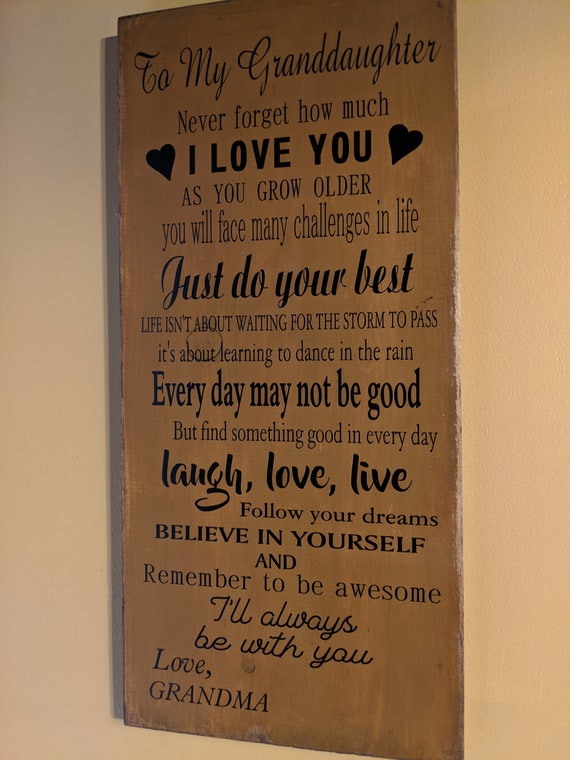 To My Granddaughter
Never forget how much
I LOVE YOU
AS YOU GROW OLDER
you will face many challenges in life
Just do your best
LIFE ISN'T ABOUT WAITING FOR THE STORM TO PASS
it's about learning to dance in the rain
Every day may not be good
But find something good in every day
laugh, love, live
Follow your dreams
BELIEVE IN YOURSELF
AND
Remember to be awesome
I'll always
be with you
Love,
GRANDMA